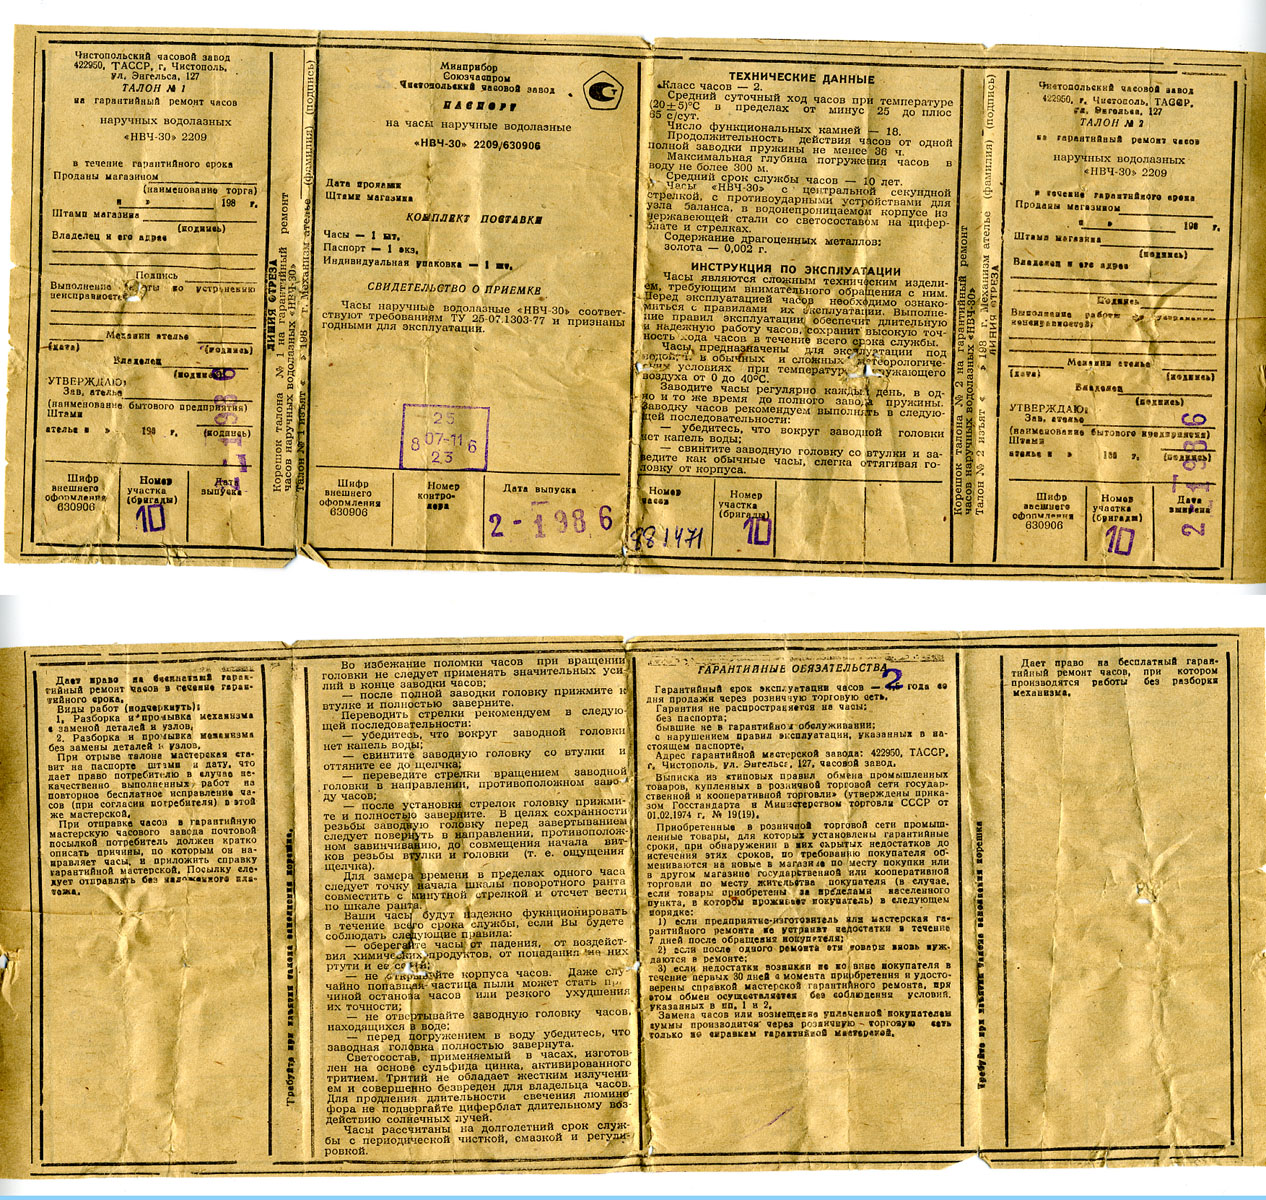 Чистопольский часовой завод
422950, ТАССР, г. Чистополь,
ул. Энгельса, 127
ТАЛОН № 1
на гарантийный ремонт часов
наручных водолазных
«НВЧ-30» 2209
в течение гарантийного срока
Проданы магазином
(наименование торга)
« » 198 г.
Штамп магазина
(подпись)
Владелец и его адрес
Подпись
Выполнены работы по устранению
неисправностей:
Механик ателье
(дата) (подпись)
Владелец
(подпись)
УТВЕРЖДАЮ:
Зав. ателье
(наименование бытового предприятия)
Штамп
ателье « » 198 г. (подпись)
Шифр
внешнего
оформления
630906
Номер
участка
(бригады)
10
Дата
выпуска
1986
ЛИНИЯ ОТРЕЗА
Корешок талона № 1 на гарантийный ремонт
часов наручных водолазных «НВЧ-30»
Талон № 1 изъят « » 198 г. Механизм ателье (фамилия) (подпись)
Минприбор
Союзчаспром
Чистопольский часовой завод
ПАСПОРТ
на часы наручные водолазные
«НВЧ-30» 2209/630906
Дата продажи
Штамп магазина
КОМПЛЕКТ ПОСТАВКИ
Часы — 1 шт.
Паспорт — 1 экз.
Индивидуальная упаковка — 1 шт.
СВИДЕТЕЛЬСТВО О ПРИЕМКЕ
Часы наручные водолазные «НВЧ-30» соответ-
ствуют требованиям ТУ 25-07.1303-77 и признаны
годными для эксплуатации.
25
8 07-11 6
23
Шифр
внешнего
оформления
630906
Номер
контро-
лера
Дата выпуска
2-1986
ТЕХНИЧЕСКИЕ ДАННЫЕ
Класс часов — 2.
Средний суточный ход часов при температуре
(20±5)°С в пределах от минус 25 до плюс
65 с/сут.
Число функциональных камней — 18.
Продолжительность действия часов от одной
полной заводки пружины не менее 36 ч.
Максимальная глубина погружения часов в
воду не более 300 м.
Средний срок службы часов — 10 лет.
Часы «НВЧ-30» с центральной секундной
стрелкой, с противоударными устройствами для
узла баланса, в водонепроницаемом корпусе из
нержавеющей стали со светосоставом на цифер-
блате и стрелках.
Содержание драгоценных металлов:
золота — 0,002 г.
ИНСТРУКЦИЯ ПО ЭКСПЛУАТАЦИИ
Часы являются сложным техническим издели-
ем, требующим внимательного обращения с ним.
Перед эксплуатацией часов необходимо ознако-
миться с правилами их эксплуатации. Выполне-
ние правил эксплуатации обеспечит длительную
и надежную работу часов, сохранит высокую точ-
ность хода часов в течение всего срока службы.
Часы предназначены для эксплуатации под
водой, в обычных и сложных метеорологиче-
ских условиях при температуре окружающего
воздуха от 0 до 40°С.
Заводите часы регулярно каждый день, в од-
но и то же время до полного завода пружины.
Заводку часов рекомендуем выполнять в следую-
щей последовательности:
— убедитесь, что вокруг заводной головки
нет капель воды;
— свинтите заводную головку со втулки и за-
ведите как обычные часы, слегка оттягивая го-
ловку от корпуса.
Номер
часов
881471
Номер
участка
(бригады)
10
Корешок талона № 2 на гарантийный ремонт
часов наручных водолазных «НВЧ-30»
Талон № 2 изъят « » 198 г. Механизм ателье (фамилия) (подпись)
ЛИНИЯ ОТРЕЗА
Чистопольский часовой завод
422950, г. Чистополь, ТАССР,
ул. Энгельса, 127
ТАЛОН № 2
на гарантийный ремонт часов
наручных водолазных
«НВЧ-30» 2209
в течение гарантийного срока
Проданы магазином
« » 198 г.
Штамп магазина
(подпись)
Владелец и его адрес
Подпись
Выполнены работы по устранению
неисправностей:
Механик ателье
(дата) (подпись)
Владелец
(подпись)
УТВЕРЖДАЮ:
Зав. ателье
(наименование бытового предприятия)
Штамп
ателье « » 198 г. (подпись)
Шифр
внешнего
оформления
630906
Номер
участка
(бригады)
10
Дата
2-1986
Дает право на бесплатный гаран-
тийный ремонт часов в течение гаран-
тийного срока.
Виды работ (подчеркнуть):
1. Разборка и промывка механизма
с заменой деталей и узлов,
2. Разборка и промывка механизма
без замены деталей и узлов.
При отрыве талона мастерская ста-
вит на паспорте штамп и дату, что
дает право потребителю в случае не-
качественно выполненных работ на
повторное бесплатное исправление ча-
сов (при согласии потребителя) в этой
же мастерской.
При отправке часов в гарантийную
мастерскую часового завода почтовой
посылкой потребитель должен кратко
описать причины, по которым он на-
правляет часы, и приложить справку
гарантийной мастерской. Посылку сле-
дует отправлять без наложенного пла-
тежа.
Требуйте при изъятии талона заполнения корешка.
Во избежание поломки часов при вращении
головки не следует применять значительных уси-
лий в конце заводки часов;
— после полной заводки головку прижмите к
втулке и полностью заверните.
Переводить стрелки рекомендуем в следую-
щей последовательности:
— убедитесь, что вокруг заводной головки
нет капель воды;
— свинтите заводную головку со втулки и
оттяните ее до щелчка;
— переведите стрелки вращением заводной
головки в направлении, противоположном заво-
ду часов;
— после установки стрелок головку прижми-
те и полностью заверните. В целях сохранности
резьбы заводную головку перед завертыванием
следует повернуть в направлении, противополож-
ном завинчиванию, до совмещения начала вит-
ков резьбы втулки и головки (т. е. ощущения
щелчка).
Для замера времени в пределах одного часа
следует точку начала шкалы поворотного ранта
совместить с минутной стрелкой и отсчет вести
по шкале ранта.
Ваши часы будут надежно функционировать
в течение всего срока службы, если Вы будете
соблюдать следующие правила:
— оберегайте часы от падения, от воздейст-
вия химических продуктов, от попадания на них
ртути и ее солей;
— не открывайте корпуса часов. Даже слу-
чайно попавшая частица пыли может стать при-
чиной останова часов или резкого ухудшения
их точности;
— не отвертывайте заводную головку часов,
находящихся в воде;
— перед погружением в воду убедитесь, что
заводная головка полностью завернута.
Светосостав, применяемый в часах, изготов-
лен на основе сульфида цинка, активированного
тритием. Тритий не обладает жестким излучени-
ем и совершенно безвреден для владельца часов.
Для продления длительности свечения люмино-
фора не подвергайте циферблат длительному воз-
действию солнечных лучей.
Часы рассчитаны на долголетний срок служ-
бы с периодической чисткой, смазкой и регули-
ровкой.
ГАРАНТИЙНЫЕ ОБЯЗАТЕЛЬСТВА
Гарантийный срок эксплуатации часов — 2 года со
дня продажи через розничную торговую сеть.
Гарантия не распространяется на часы:
без паспорта;
бывшие не в гарантийном обслуживании;
с нарушением правил эксплуатации, указанных в на-
стоящем паспорте.
Адрес гарантийной мастерской завода: 422950, ТАССР,
г. Чистополь, ул. Энгельса, 127, часовой завод.
Выписка из «типовых правил обмена промышленных
товаров, купленных в розничной торговой сети государ-
ственной и кооперативной торговли» (утверждены прика-
зом Госстандарта и Министерством торговли СССР от
01.02.1974 г. № 19(19).
Приобретенные в розничной торговой сети промыш-
ленные товары, для которых установлены гарантийные
сроки, при обнаружении в них скрытых недостатков до
истечения этих сроков, по требованию покупателя об-
мениваются на новые в магазине по месту покупки или
в другом магазине государственной или кооперативной
торговли по месту жительства покупателя (в случае,
если товары приобретены за пределами населенного
пункта, в котором проживает покупатель) в следующем
порядке:
1) если предприятие-изготовитель или мастерская га-
рантийного ремонта не устранит недостатки в течение
7 дней после обращения покупателя;
2) если после одного ремонта эти товары вновь нуж-
даются в ремонте;
3) если недостатки возникли не по вине покупателя в
течение первых 30 дней с момента приобретения и удосто-
верены справкой мастерской гарантийного ремонта, при
этом обмен осуществляется без соблюдения условий,
указанных в пп. 1 и 2.
Замена часов или возмещение уплаченной покупателем
суммы производится через розничную торговую сеть
только по справкам гарантийной мастерской.
Требуйте при изъятии талона заполнения корешка
Дает право на бесплатный гаран-
тийный ремонт часов, при котором
производятся работы без разборки
механизма.